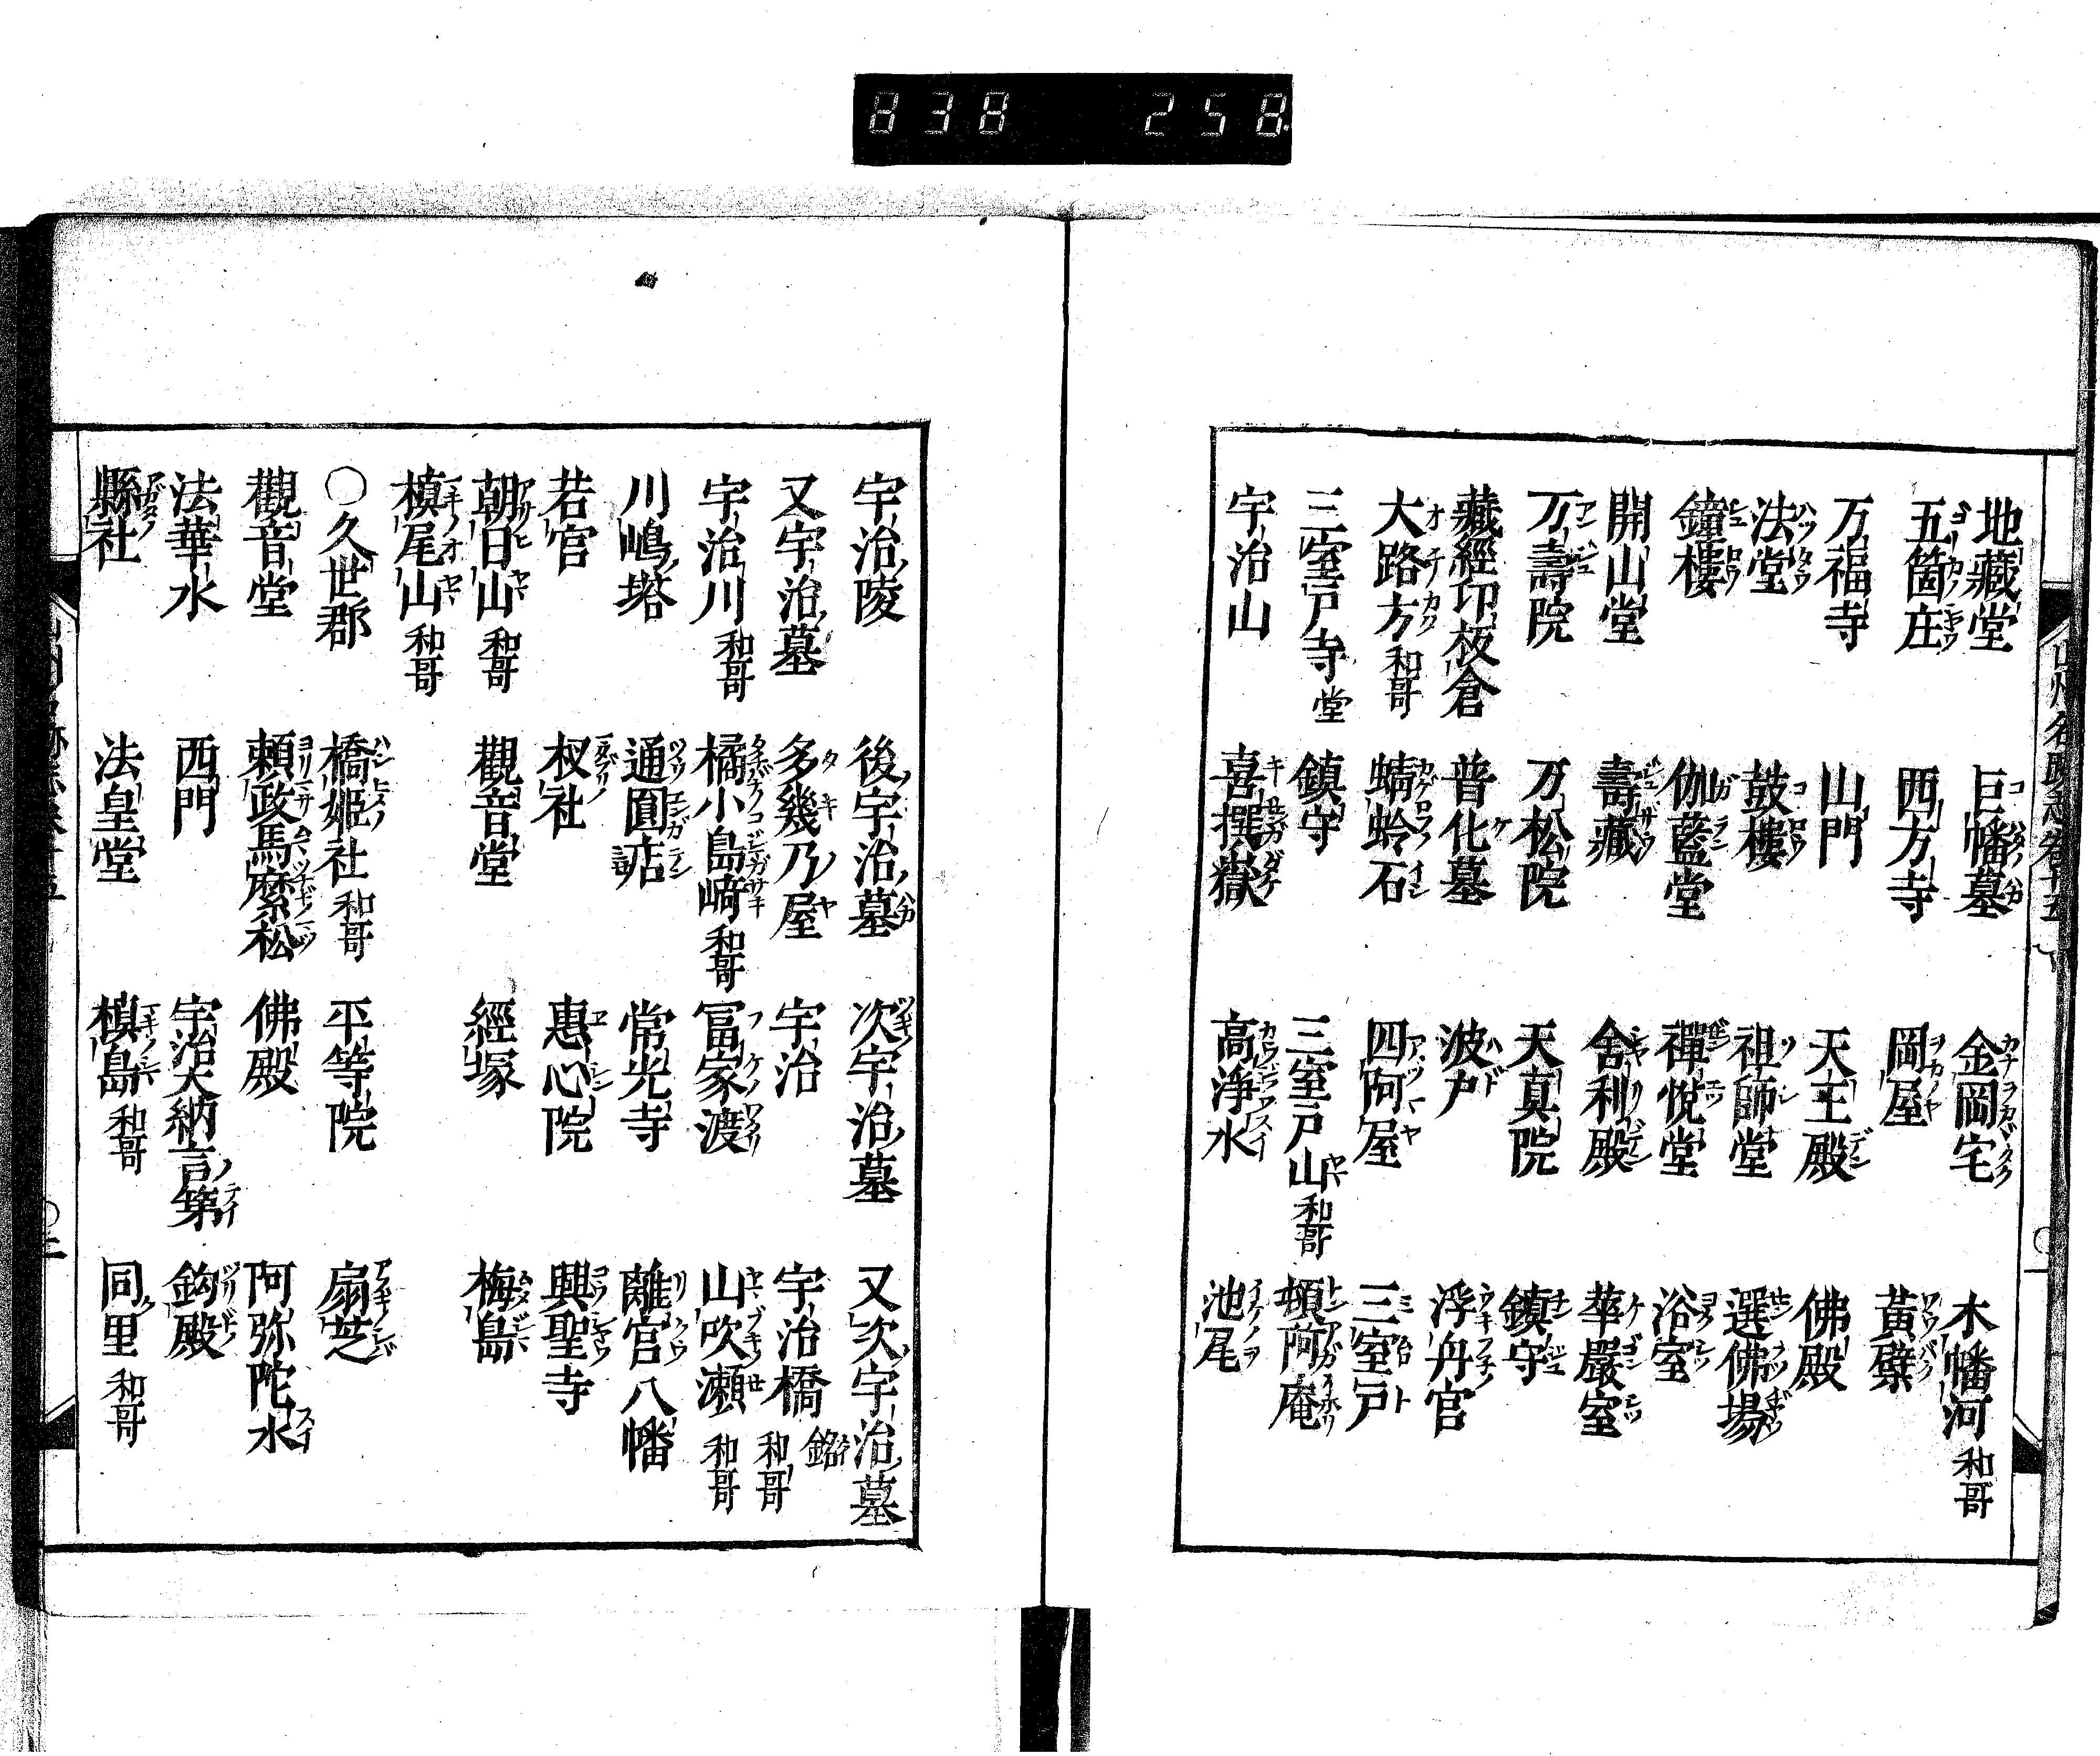 838 258
地藏堂 巨幡墓 金岡宅 木幡河 和哥
五箇庄 西方寺 岡屋 黃檗
万福寺 山門 天王殿 佛殿
法堂 鼓樓 祖師堂 選佛場
鐘樓 伽藍堂 禪悅堂 浴室
開山堂 壽藏 舍利殿 華嚴室
万壽院 万松院 天真院 鎮守
藏經印板倉 普化墓 波戸 浮舟宮
大路方 和哥 蜻蛉石 四阿屋 三室戸
三室戸寺 堂 鎮守 三室戸山 和哥 頓阿庵
宇治山 喜撰嶽 高浄水 池尾
宇治陵 後宇治墓 次宇治墓 又次宇治墓
又宇治墓 多幾乃屋 宇治 宇治橋 銘 和哥
宇治川 和哥 橘小島崎 和哥 冨家渡 山吹瀬 和哥
川嶋塔 通圓店 常光寺 離宮八幡
若宮 杈社 惠心院 興聖寺
朝日山 和哥 觀音堂 經塚 梅島
槙尾山 和哥
○久世郡 橋姫社 和哥 平等院 扇芝
觀音堂 頼政馬繫松 佛殿 阿弥陀水
法華水 西門 宇治大納言第 釣殿
縣社 法皇堂 槙島 和哥 同里 和哥